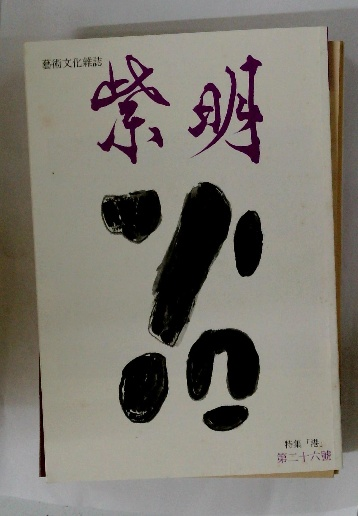 藝術文化雜誌
紫明
特集「港」
第二十六號